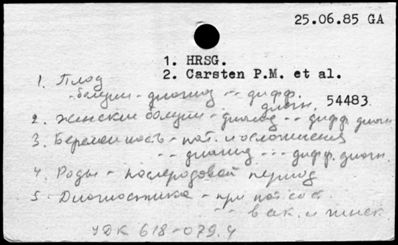 25.06.85 GA
1. HRSG.
2. Carsten P.M. et al.
1. Плод
- болезни - диагноз - - дифф.
диагн.
54483
2. Женские болезни - диагноз - - дифф. диагн
3. Беременность - пат. и осложнения
- - диагноз - - - дифф. диагн.
4. Роды - послеродовой период
5. Диагностика - при пат. сост.
- - в ак. и гинек.
УДК 618-079.4